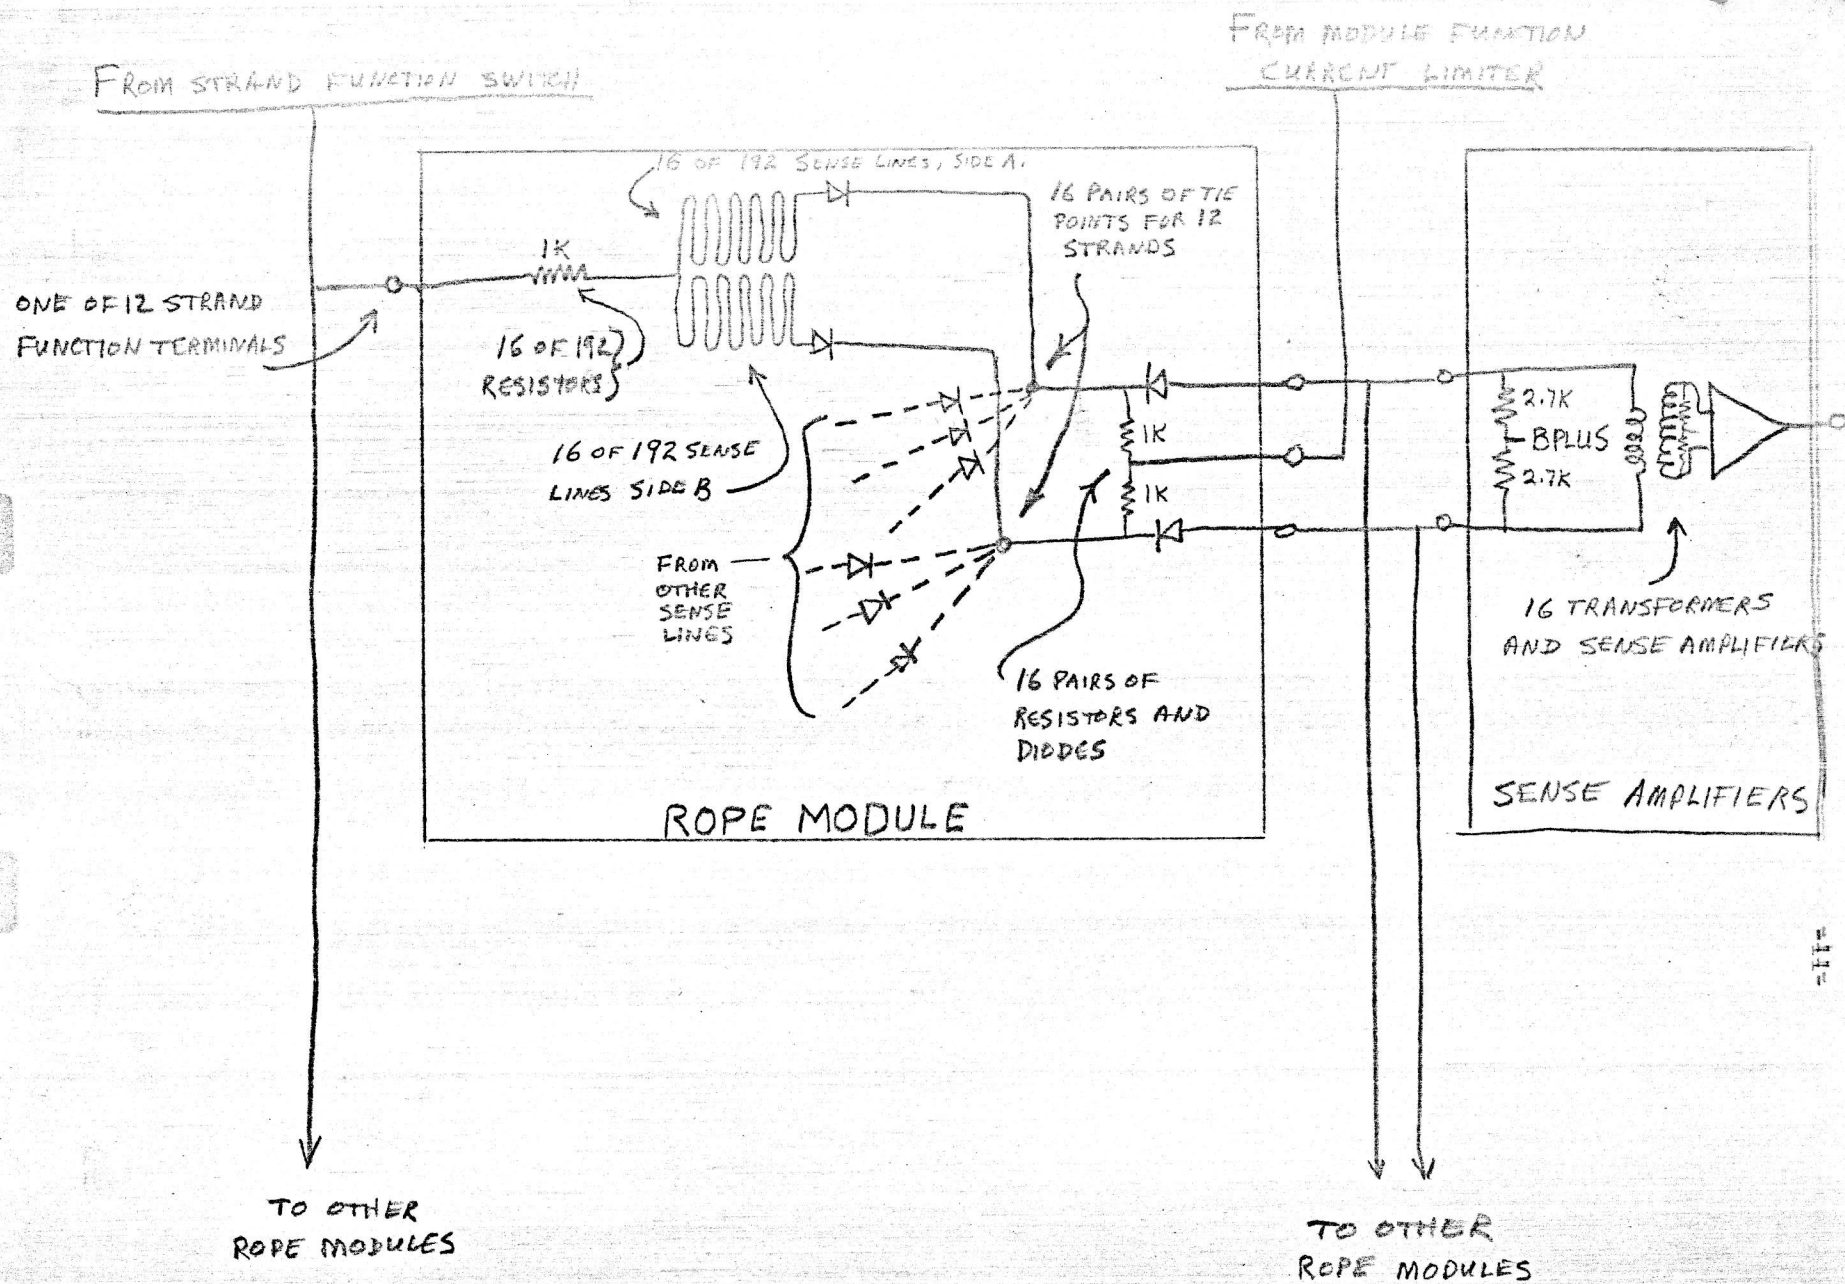 FROM STRAND FUNCTION SWITCH
FROM MODULE FUNCTION
CURRENT LIMITER
16 OF 192 SENSE LINES, SIDE A.
16 PAIRS OF TIE
POINTS FOR 12
STRANDS
1K
ONE OF 12 STRAND
FUNCTION TERMINALS
16 OF 192
RESISTORS
16 OF 192 SENSE
LINES SIDE B
1K
1K
2.7K
BPLUS
2.7K
FROM
OTHER
SENSE
LINES
16 PAIRS OF
RESISTORS AND
DIODES
16 TRANSFORMERS
AND SENSE AMPLIFIERS
ROPE MODULE
SENSE AMPLIFIERS
-11-
TO OTHER
ROPE MODULES
TO OTHER
ROPE MODULES